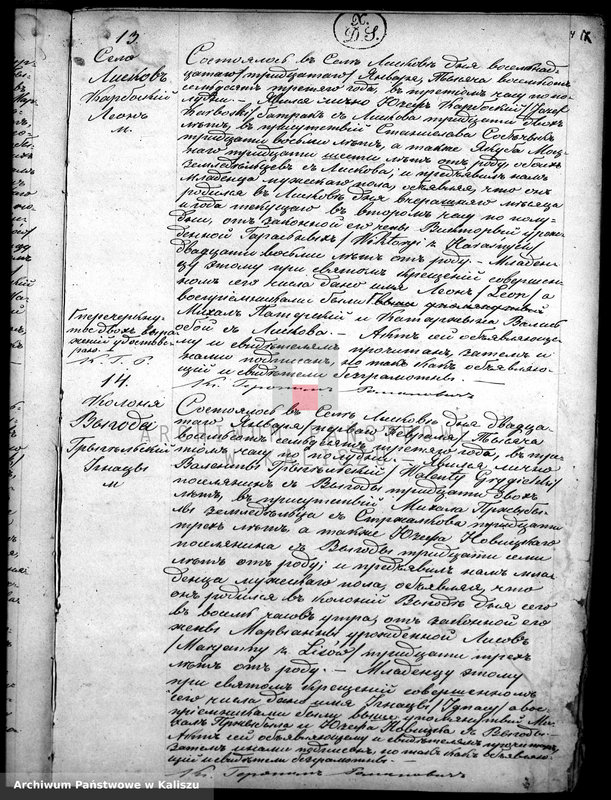 X.
D.S.
13.
Село
Лисковъ
Карбоскій
Леонъ
м.
Состоялось въ Селѣ Лисковѣ дня восемнад-
цатаго /тридцатаго/ Января, Тысяча восемьсотъ
семдесятъ третяго года, въ третемъ часу по по-
лудни. — Явился лично Юзефъ Карбоскій /Józef
Karboski/ батракъ съ Лискова тридцати двухъ
лѣтъ, въ присутствіи Станислава
тридцати восьми лѣтъ, а также Якуба
тридцати шести лѣтъ отъ роду, обоихъ
земледѣльцевъ съ Лискова; и предъявилъ намъ
младенца мужескаго пола, объявляя, что онъ
родился въ Лисковѣ дня вчерашняго мѣсяца
и года текущаго въ второмъ часу по полу-
дни, отъ законной его жены Викторыи урож-
денной /Wiktoryi z
двадцати восьми лѣтъ отъ роду. — Младен-
цу этому при святомъ крещеніи совершен-
номъ сего числа дано имя Леонъ /Leon/ а
воспріемниками были
Михалъ и Катаржына
съ Лискова. — Актъ сей объявляюще-
му и свидѣтелямъ прочитанъ, затемъ и
нами подписанъ, но такъ какъ объявляю-
щій и свидѣтели безграмотны. —
Кс.
двохъ
14.
Колонія
Выгода
Грыгельскій
Игнацы
м
Состоялось въ Селѣ Лисковѣ дня двадца-
таго Января /перваго Февраля/ Тысяча
восемьсотъ семдесятъ третяго года, въ тре-
темъ часу по полудни. — Явился лично
Валенты Грыгельскій /Walenty
поселянинъ съ Выгоды тридцати двохъ
лѣтъ, въ присутствіи Михала
земледѣльца съ Стржалкова тридцати
трехъ лѣтъ а также Юзефа Новицкаго
поселянина съ Выгоды тридцати семи
лѣтъ отъ роду; и предъявилъ намъ мла-
денца мужескаго пола, объявляя, что
онъ родился въ Колоніи Выгодѣ дня сего
въ восемь часовъ утра, отъ законной его
жены Марыанны урожденной Лисовъ
/Maryanny z Lisów/ тридцати трехъ
лѣтъ отъ роду. — Младенцу этому
при святомъ крещеніи совершенномъ
сего числа дано имя Игнацы /Ignacy/ а вос-
пріемниками были выше упомянутый Ми-
халъ и Юзефа Новицка съ Выгоды.
Актъ сей объявляющему и свидѣтелямъ прочитанъ,
затемъ и нами подписанъ, но такъ какъ объявляю-
щій и свидѣтели безграмотны. —
Кс.
ARCHIWUM PAŃSTWOWE
W KALISZU
Archiwum Państwowe w Kaliszu